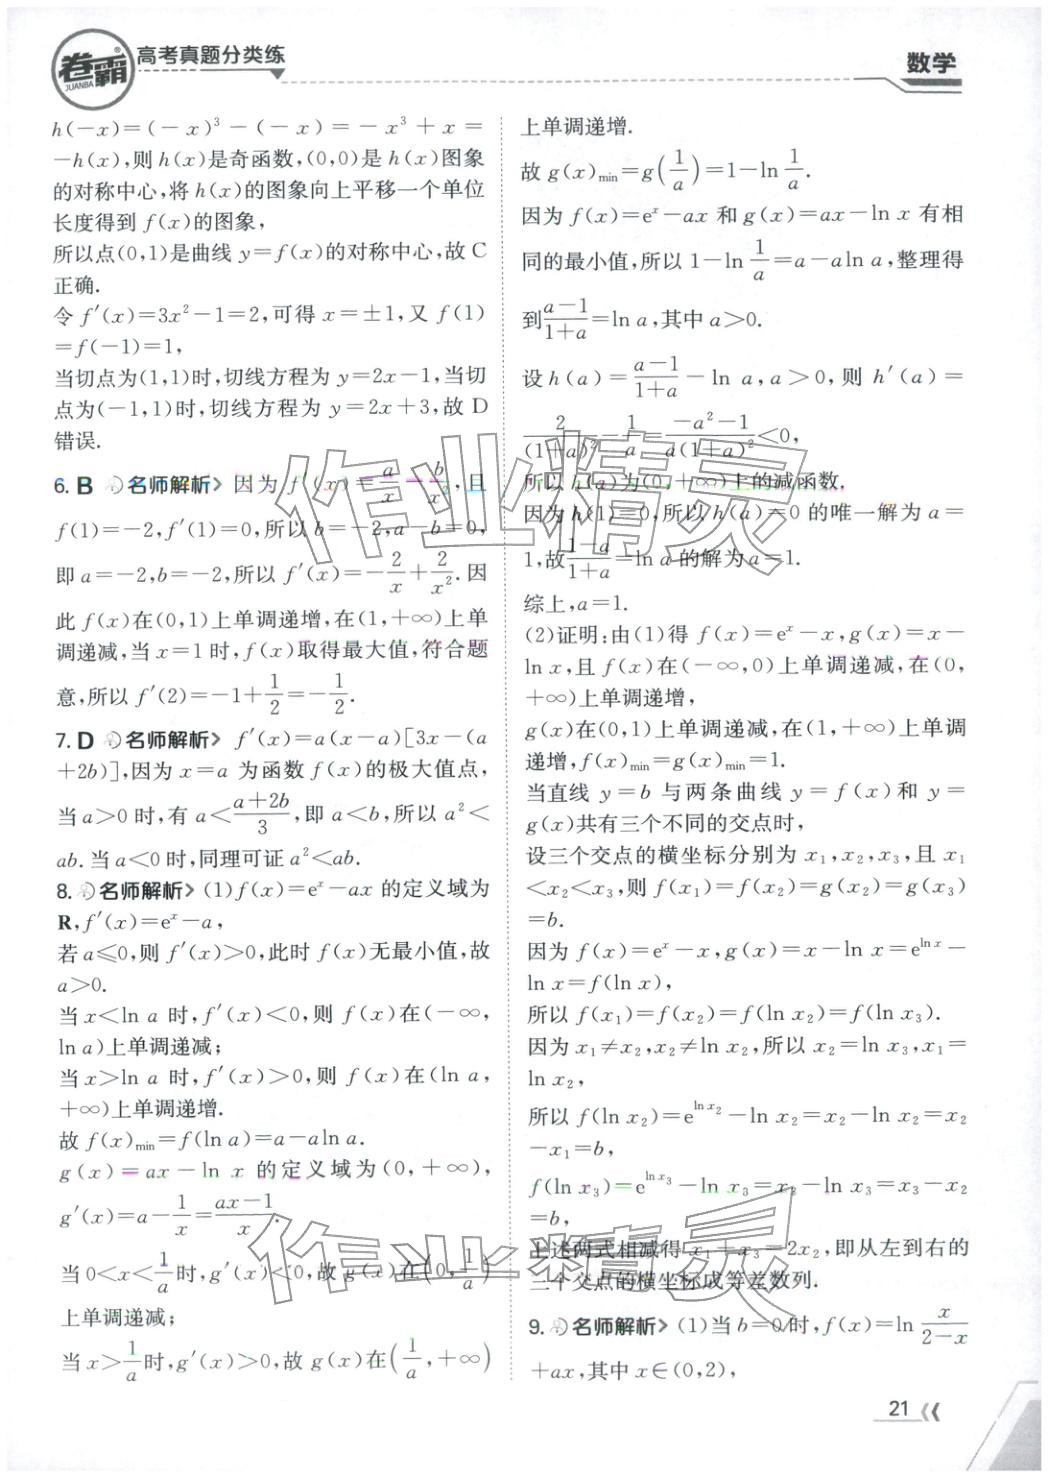 卷霸
JUANBA
高考真题分类练
数学
h(-x)=(-x)³-(-x)=-x³+x=
-h(x),则 h(x)是奇函数,(0,0)是 h(x)图象
的对称中心,将 h(x)的图象向上平移一个单位
长度得到 f(x)的图象,
所以点(0,1)是曲线 y=f(x)的对称中心,故 C
正确.
令 f′(x)=3x²-1=2,可得 x=±1,又 f(1)
=f(-1)=1,
当切点为(1,1)时,切线方程为 y=2x-1,当切
点为(-1,1)时,切线方程为 y=2x+3,故 D
错误.
6. B 名师解析> 因为 f′(x)=a/x-b/x²,且
f(1)=-2,f′(1)=0,所以 b=-2,a-b=0,
即 a=-2,b=-2,所以 f′(x)=-2/x+2/x².因
此 f(x)在(0,1)上单调递增,在(1,+∞)上单
调递减,当 x=1 时,f(x)取得最大值,符合题
意,所以 f′(2)=-1+1/2=-1/2.
7. D 名师解析> f′(x)=a(x-a)[3x-(a
+2b)],因为 x=a 为函数 f(x)的极大值点,
当 a>0 时,有 a<(a+2b)/3,即 a<b,所以 a²<
ab.当 a<0 时,同理可证 a²<ab.
8. 名师解析> (1)f(x)=eˣ-ax 的定义域为
R,f′(x)=eˣ-a,
若 a≤0,则 f′(x)>0,此时 f(x)无最小值,故
a>0.
当 x<ln a 时,f′(x)<0,则 f(x)在(-∞,
ln a)上单调递减;
当 x>ln a 时,f′(x)>0,则 f(x)在(ln a,
+∞)上单调递增.
故 f(x)min=f(ln a)=a-aln a.
g(x)=ax-ln x 的定义域为(0,+∞),
g′(x)=a-1/x=(ax-1)/x.
当 0<x<1/a时,g′(x)<0,故 g(x)在(0,1/a)
上单调递减;
当 x>1/a时,g′(x)>0,故 g(x)在(1/a,+∞)
上单调递增.
故 g(x)min=g(1/a)=1-ln 1/a.
因为 f(x)=eˣ-ax 和 g(x)=ax-ln x 有相
同的最小值,所以 1-ln 1/a=a-aln a,整理得
到(a-1)/(1+a)=ln a,其中 a>0.
设 h(a)=(a-1)/(1+a)-ln a,a>0,则 h′(a)=
2/(1+a)²-1/a=(-a²-1)/(a(1+a)²)<0,
所以 h(a)为(0,+∞)上的减函数,
因为 h(1)=0,所以 h(a)=0 的唯一解为 a=
1,故(1-a)/(1+a)=ln a 的解为 a=1.
综上,a=1.
(2)证明:由(1)得 f(x)=eˣ-x,g(x)=x-
ln x,且 f(x)在(-∞,0)上单调递减,在(0,
+∞)上单调递增,
g(x)在(0,1)上单调递减,在(1,+∞)上单调
递增,f(x)min=g(x)min=1.
当直线 y=b 与两条曲线 y=f(x)和 y=
g(x)共有三个不同的交点时,
设三个交点的横坐标分别为 x₁,x₂,x₃,且 x₁
<x₂<x₃,则 f(x₁)=f(x₂)=g(x₂)=g(x₃)
=b.
因为 f(x)=eˣ-x,g(x)=x-ln x=e^(ln x)-
ln x=f(ln x),
所以 f(x₁)=f(x₂)=f(ln x₂)=f(ln x₃).
因为 x₁≠x₂,x₂≠ln x₂,所以 x₂=ln x₃,x₁=
ln x₂,
所以 f(ln x₂)=e^(ln x₂)-ln x₂=x₂-ln x₂=x₂
-x₁=b,
f(ln x₃)=e^(ln x₃)-ln x₃=x₃-ln x₃=x₃-x₂
=b,
上述两式相减得 x₁+x₃=2x₂,即从左到右的
三个交点的横坐标成等差数列.
9. 名师解析> (1)当 b=0 时,f(x)=ln x/(2-x)
+ax,其中 x∈(0,2),
21
作业精灵
作业精灵